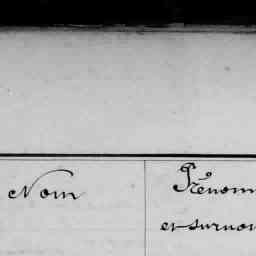 Nom
Prénom
et surnom